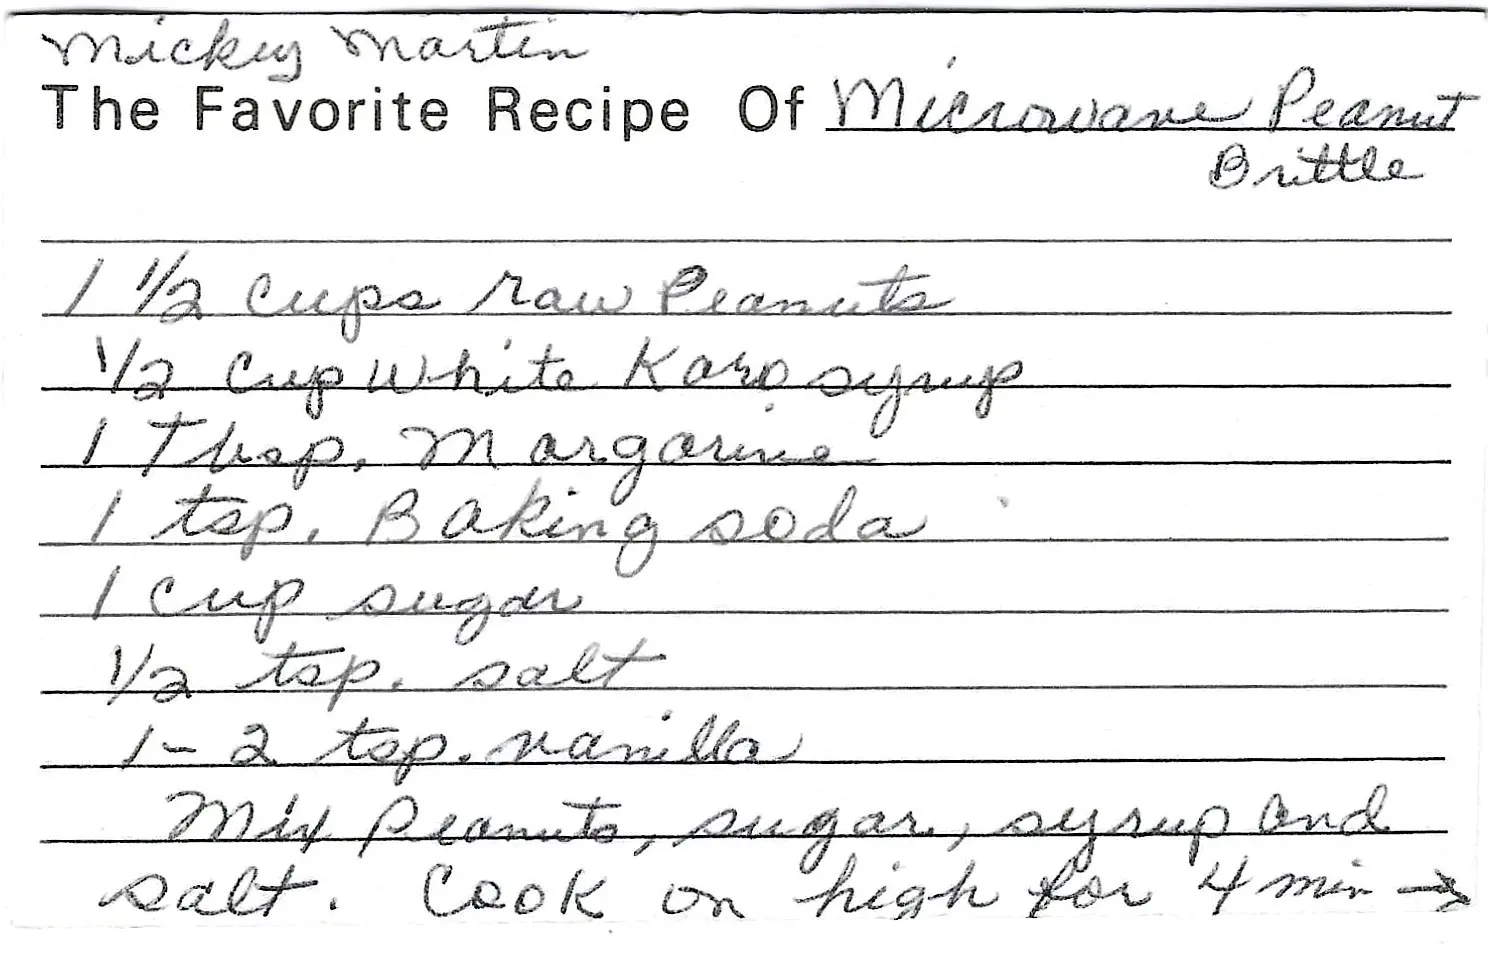 Mickey Martin
The Favorite Recipe Of Microwave Peanut
Brittle
1 1/2 cups raw Peanuts
1/2 cup White Karo syrup
1 Tbsp. Margarine
1 tsp. Baking soda
1 cup sugar
1/2 tsp. salt
1-2 tsp. vanilla
Mix Peanuts, sugar, syrup and
salt. Cook on high for 4 min →